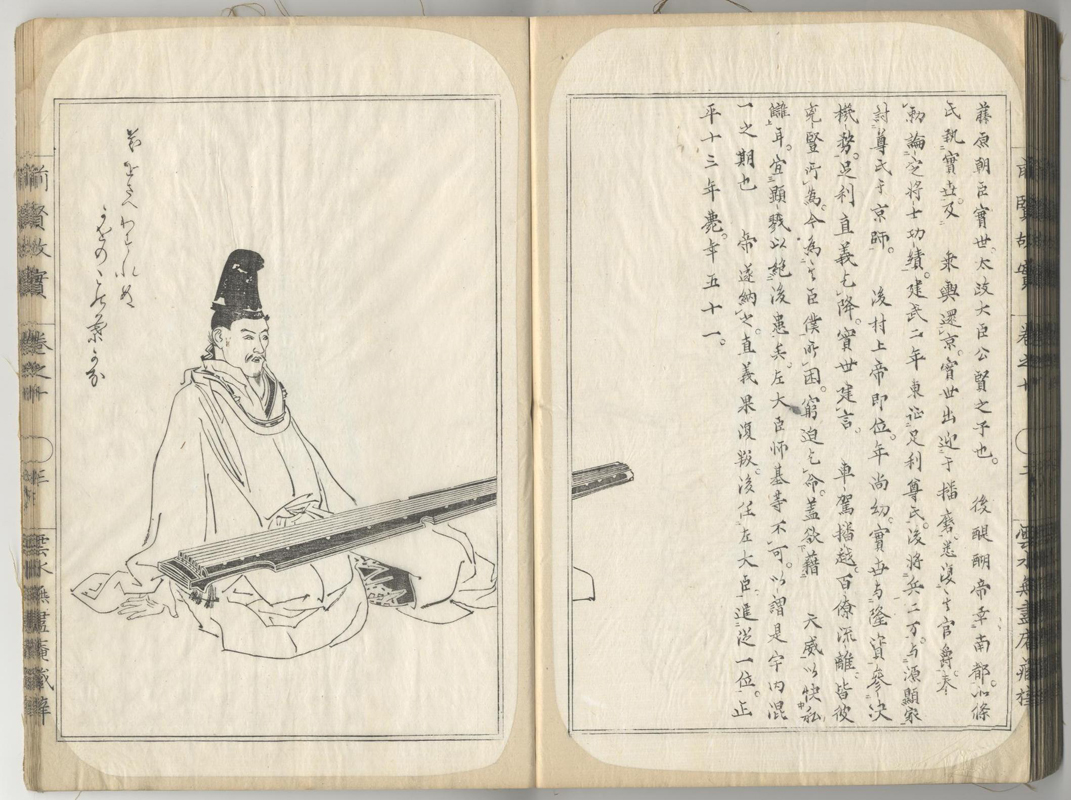 前賢故實 卷之十 雲水無盡庵藏梓
藤原朝臣實世太政大臣公賢之子也。 後醍醐帝幸南都北條
氏執實世及 乘輿還京。實世出迎于播磨悉復其官爵。奉
勅論定將士功績。建武二年東征足利尊氏。後將兵二万与源顯家
討尊氏于京師。 後村上帝即位。年尚幼。實世与隆資參決
機務。足利直義乞降。實世建言。 車駕播越。百僚流離。皆彼
兇豎所為。今為其臣僕所困。窮迫乞命。蓋欲藉 天威以快私
讎耳。宜顯戮以絶後患矣。左大臣師基等不可。以謂是宇内混
一之期也 帝遂納之。直義果復叛。後任左大臣進從一位。正
平十三年薨。年五十一。
前賢故實 卷之十 雲水無盡庵藏梓